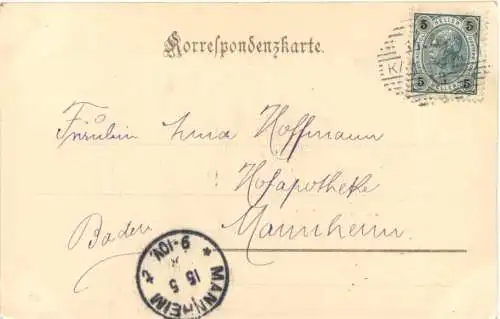 Korrespondenzkarte.
5 HELLER 5
5 HELLER 5
Fräulein Hoffmann
Hofapotheke
Baden Mannheim
MANNHEIM 2
15 5
9-10V.